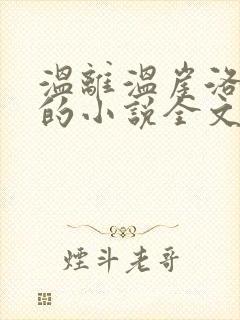 溫離溫崖洛
的小說全文
煙斗老哥